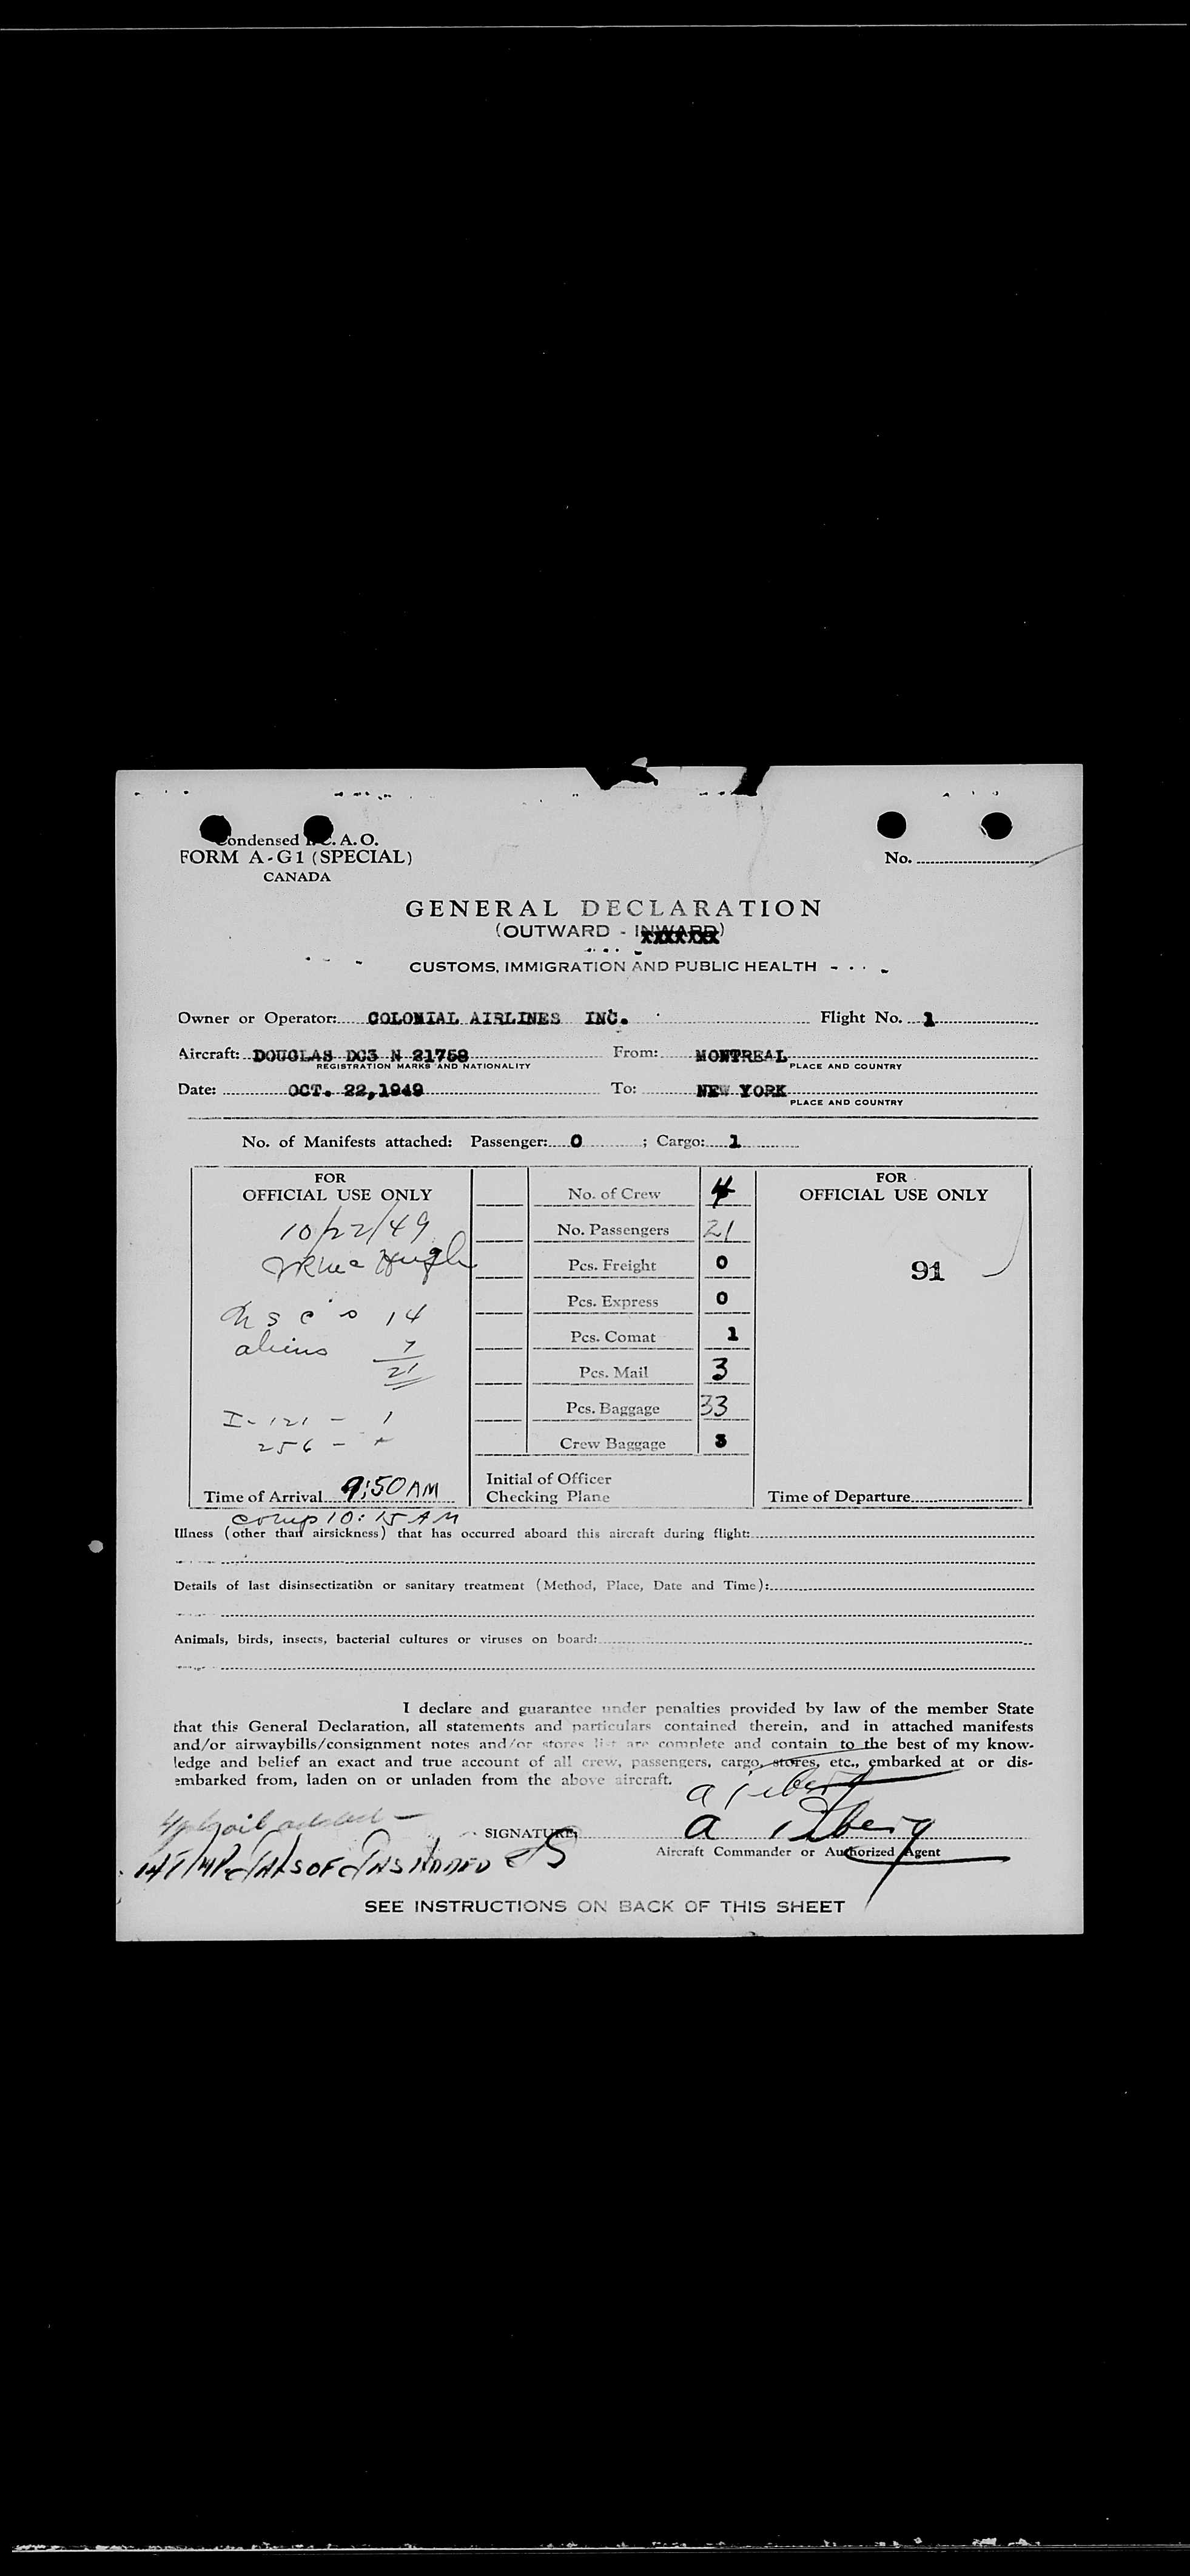 Condensed I.C.A.O.
FORM A-G1 (SPECIAL)
CANADA
No.
GENERAL DECLARATION
(OUTWARD - INWARD)
CUSTOMS, IMMIGRATION AND PUBLIC HEALTH
Owner or Operator: COLONIAL AIRLINES INC. Flight No. 1
Aircraft: DOUGLAS DC3 N 21758 From: MONTREAL
REGISTRATION MARKS AND NATIONALITY PLACE AND COUNTRY
Date: OCT. 22,1949 To: NEW YORK
PLACE AND COUNTRY
No. of Manifests attached: Passenger: 0 ; Cargo: 1
FOR
OFFICIAL USE ONLY
10/22/49
s c's 14
aliens 7
21
I-121 - 1
256 -
Time of Arrival 9:50 AM
comp 10:15 AM
No. of Crew 4
No. Passengers 21
Pcs. Freight 0
Pcs. Express 0
Pcs. Comat 1
Pcs. Mail 3
Pcs. Baggage 33
Crew Baggage 3
Initial of Officer
Checking Plane
FOR
OFFICIAL USE ONLY
91
Time of Departure
Illness (other than airsickness) that has occurred aboard this aircraft during flight:
Details of last disinsectization or sanitary treatment (Method, Place, Date and Time):
Animals, birds, insects, bacterial cultures or viruses on board:
I declare and guarantee under penalties provided by law of the member State
that this General Declaration, all statements and particulars contained therein, and in attached manifests
and/or airwaybills/consignment notes and/or stores list are complete and contain to the best of my know-
ledge and belief an exact and true account of all crew, passengers, cargo, stores, etc., embarked at or dis-
embarked from, laden on or unladen from the above aircraft.
SIGNATURE:
Aircraft Commander or Authorized Agent
SEE INSTRUCTIONS ON BACK OF THIS SHEET